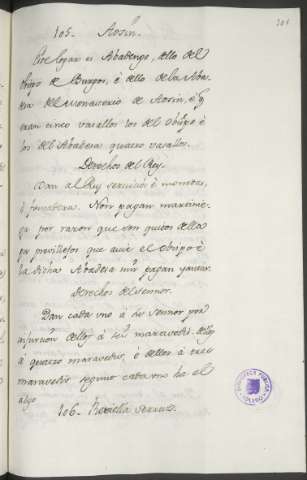 101
105. Aosin.
Este logar es Abadengo, dello del
Obispo de Burgos, è dello de la Aba-
desa del Monasterio de Aosin, è
eran cinco vasallos los del Obispo è
los del Abadesa quatro vasallos.
Derechos del Rey.
Dan al Rey servicios è monedas,
è fonsadera. Non pagan martinie-
ga por razon que son quitos della
por previllejos que avie el Obispo è
la dicha Abadesa nin pagan yantar.
Derechos del Sennor.
Dan cada uno à su Sennor por
infurcion dellos à seis maravedis dellos
à quatro maravedis, è dellos à tres
maravedis segunt cada uno ha el
algo
106. Serrano.
BIBLIOTECA PUBLICA
TOLEDO